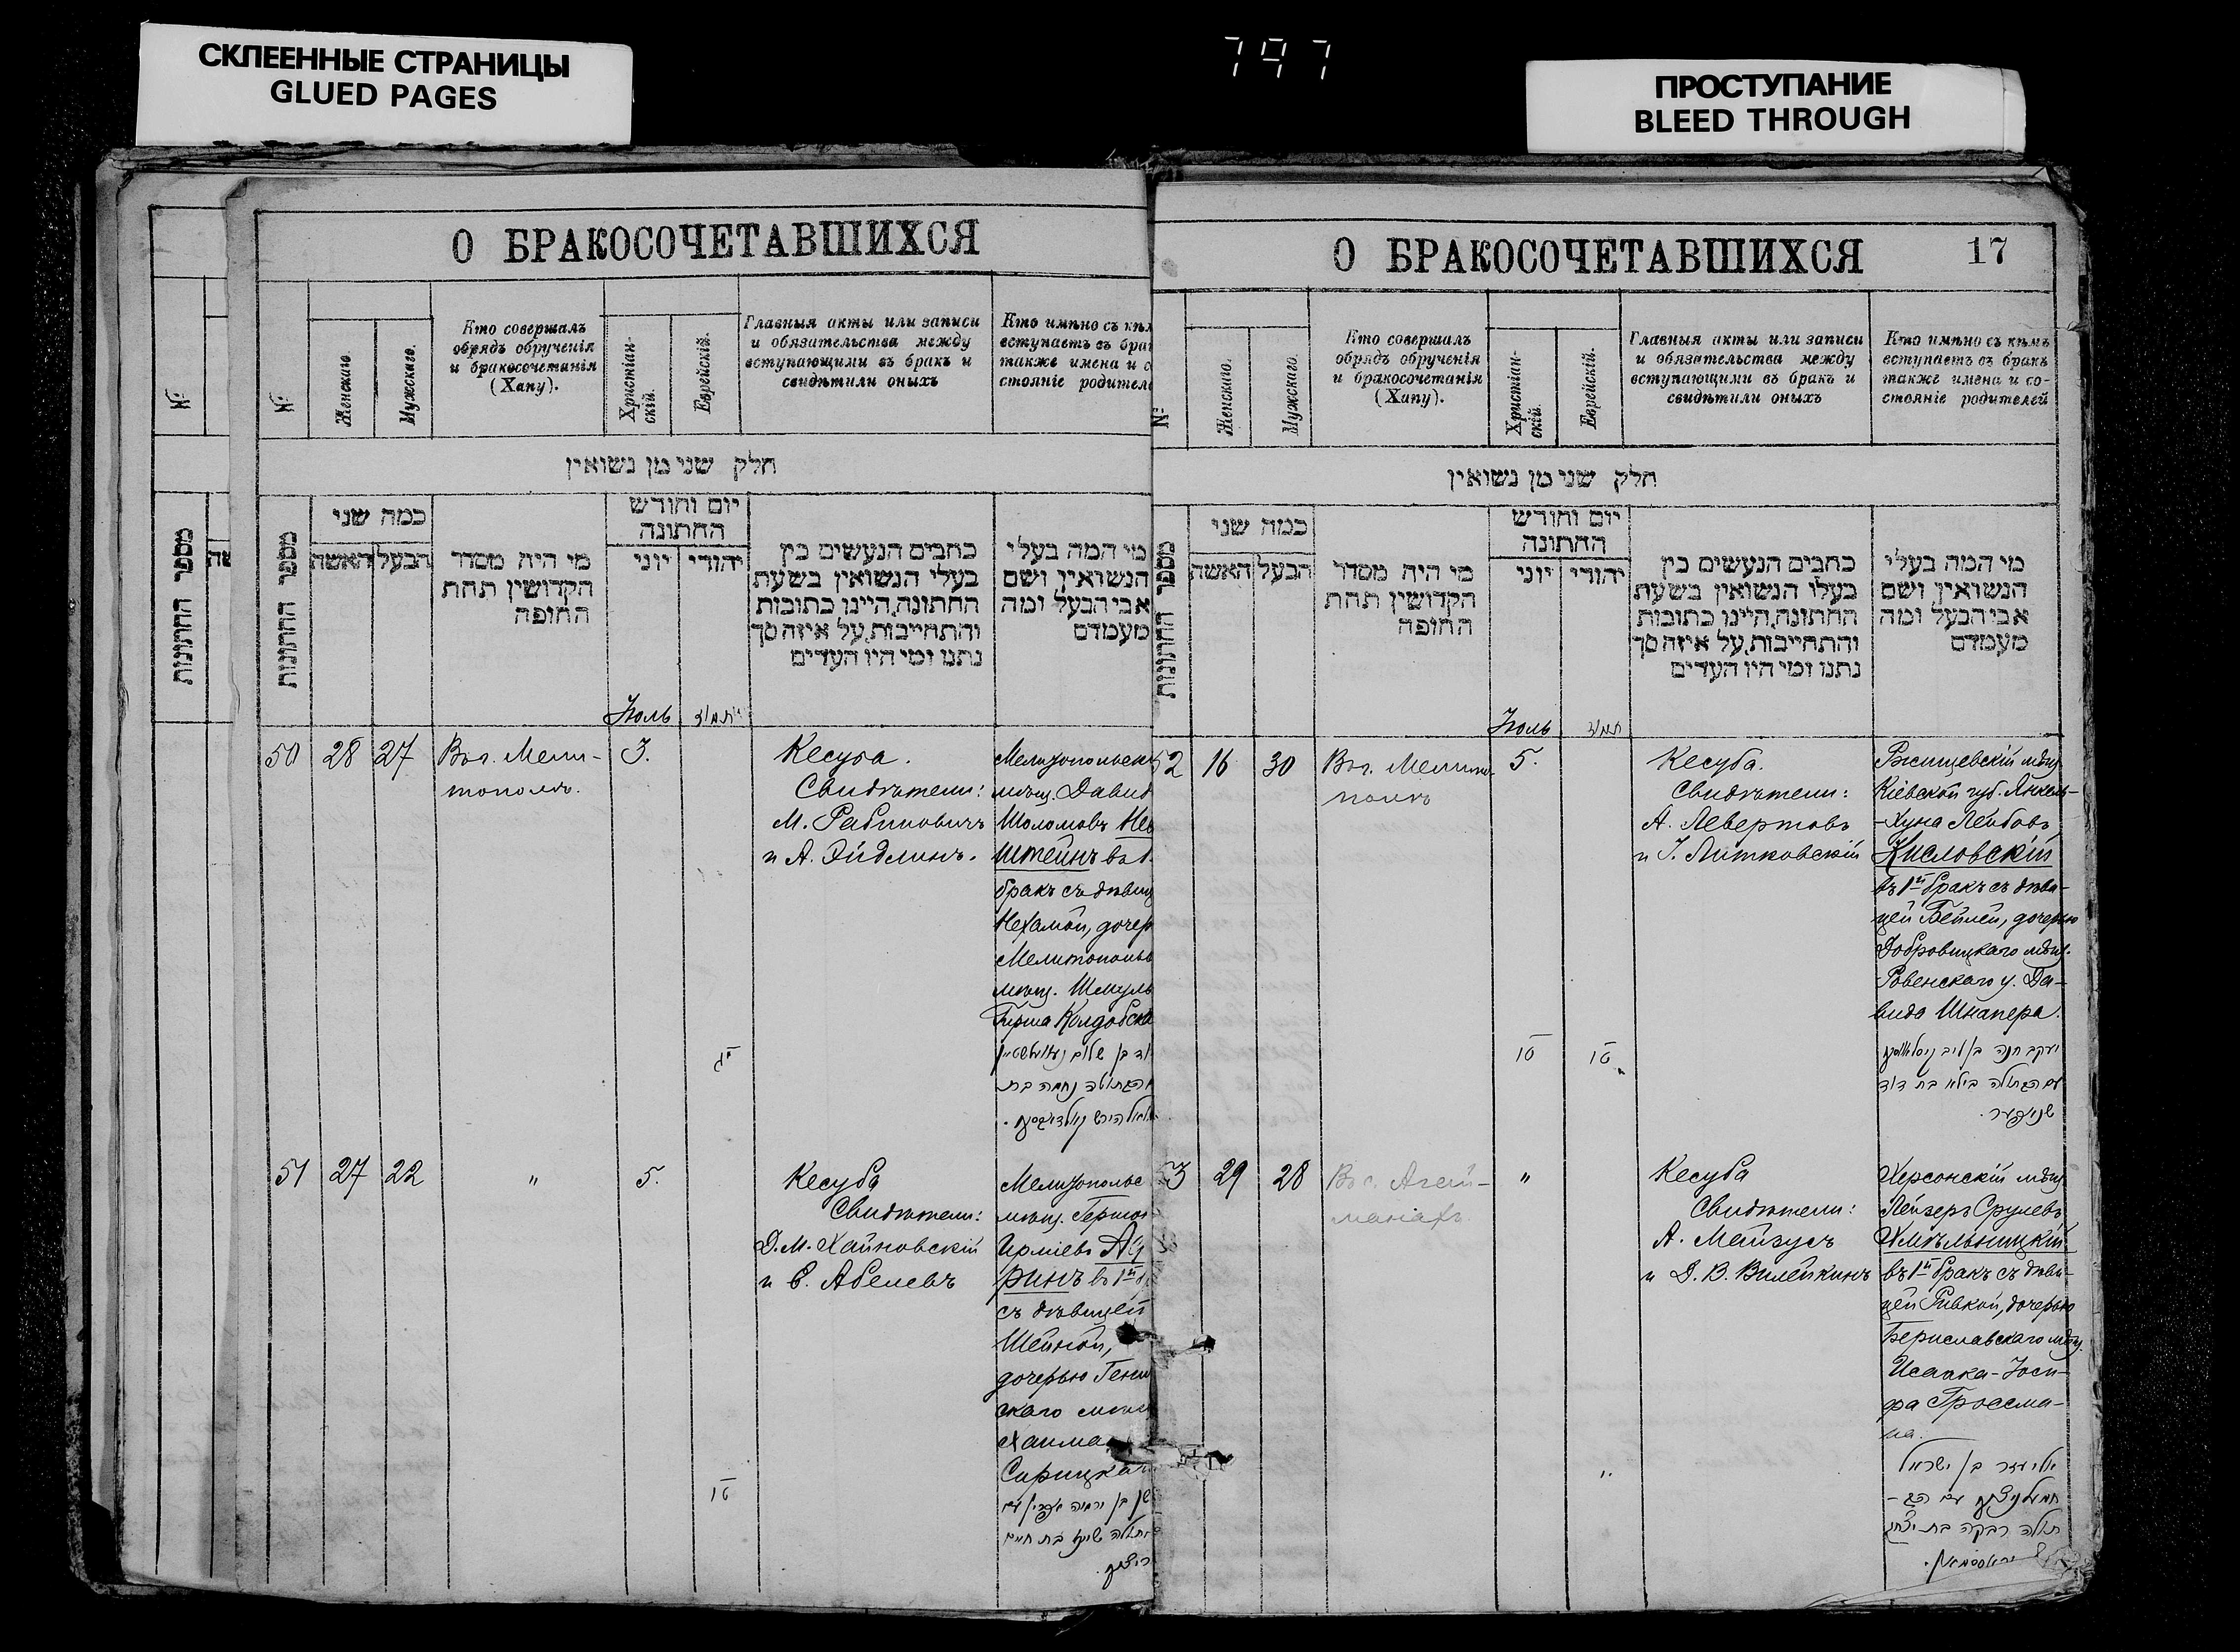 СКЛЕЕННЫЕ СТРАНИЦЫ
GLUED PAGES
797
ПРОСТУПАНИЕ
BLEED THROUGH
О БРАКОСОЧЕТАВШИХСЯ
№
№
Женскаго.
Мужскаго.
Кто совершалъ
обрядъ обрученія
и бракосочетанія
(Хупу).
Христіан-
скій.
Еврейскій.
Главныя акты или записи
и обязательства между
вступающими въ бракъ и
свидѣтили оныхъ
Кто имѣно съ кѣм
вступаетъ въ бра
также имена и с
стояніе родител
חלק שני מן נשואין
מספר החתונות
מספר החתונות
כמה שני
האשה
הבעל
מי היה מסדר
הקדושין תחת
החופה
יום וחודש
החתונה
יוני
יהודי
כתבים הנעשים בין
בעלי הנשואין בשעת
החתונה, היינו כתובות
והתחייבות, על איזה סך
נתנו ומי היו העדים
מי המה בעלי
הנשואין ושם
אבי הבעל ומה
מעמדם
Іюль
תמוז
50
28
27
Въ г. Мели-
тополѣ.
3.
Кесуба.
Свидѣтели:
М. Рабиновичъ
и А. Эйдлинъ.
мѣщ. Давид
Шоломовъ
штейнъ въ 1.
бракъ съ дѣвиц
Нехамой, дочер
Мелитопольс
мѣщ. Шмуль
Гирша Колдобска
יג
51
27
22
"
5.
Кесуба
Свидѣтели:
Д. М. Хайновскій
и С. Абелевъ
мѣщ. Гершон
ринъ въ 1й
съ дѣвицей
Шейной,
дочерью Гени
скаго мѣщ
Хаима
טו
О БРАКОСОЧЕТАВШИХСЯ
17
№
Женскаго.
Мужскаго.
Кто совершалъ
обрядъ обрученія
и бракосочетанія
(Хупу).
Христіан-
скій.
Еврейскій.
Главныя акты или записи
и обязательства между
вступающими въ бракъ и
свидѣтили оныхъ
Кто имѣно съ кѣмъ
вступаетъ въ бракъ
также имена и со-
стояніе родителей
חלק שני מן נשואין
מספר החתונות
כמה שני
האשה
הבעל
מי היה מסדר
הקדושין תחת
החופה
יום וחודש
החתונה
יוני
יהודי
כתבים הנעשים בין
בעלו הנשואין בשעת
החתונה, היינו כתובות
והתחייבות, על איזה סך
נתנו ומי היו העדים
מי המה בעלי
הנשואין ושם
אבי הבעל ומה
מעמדם
Іюль
תמוז
52
16
30
Въ г. Мелито-
полѣ
5.
Кесуба.
Свидѣтели:
А. Левертовъ
и І. Литковскій
Ржищевскій мѣщ.
Кіевской губ. Янкель-
-Хуна Лейбовъ
Кисловскій
въ 1й бракъ съ дѣви-
цей Бейлей, дочерью
Домбровицкаго мѣщ.
Ровенскаго у. Да-
вида Шнапера.
טו
טו
53
29
28
Въ с. Агай-
манахъ.
"
Кесуба
Свидѣтели:
А. Мейзусъ
и Д. В. Вилейкинъ
Херсонскій мѣщ.
Лейзеръ Срулевъ
Хмѣльницкій
въ 1й бракъ съ дѣви-
цей Ривкой, дочерью
Бериславскаго мѣщ.
Исаака-Іоси-
фа Гроссма-
на.
"
אליעזר בן ישראל
חמעלניצקי עם הב-
תולה רבקה בת יצחק